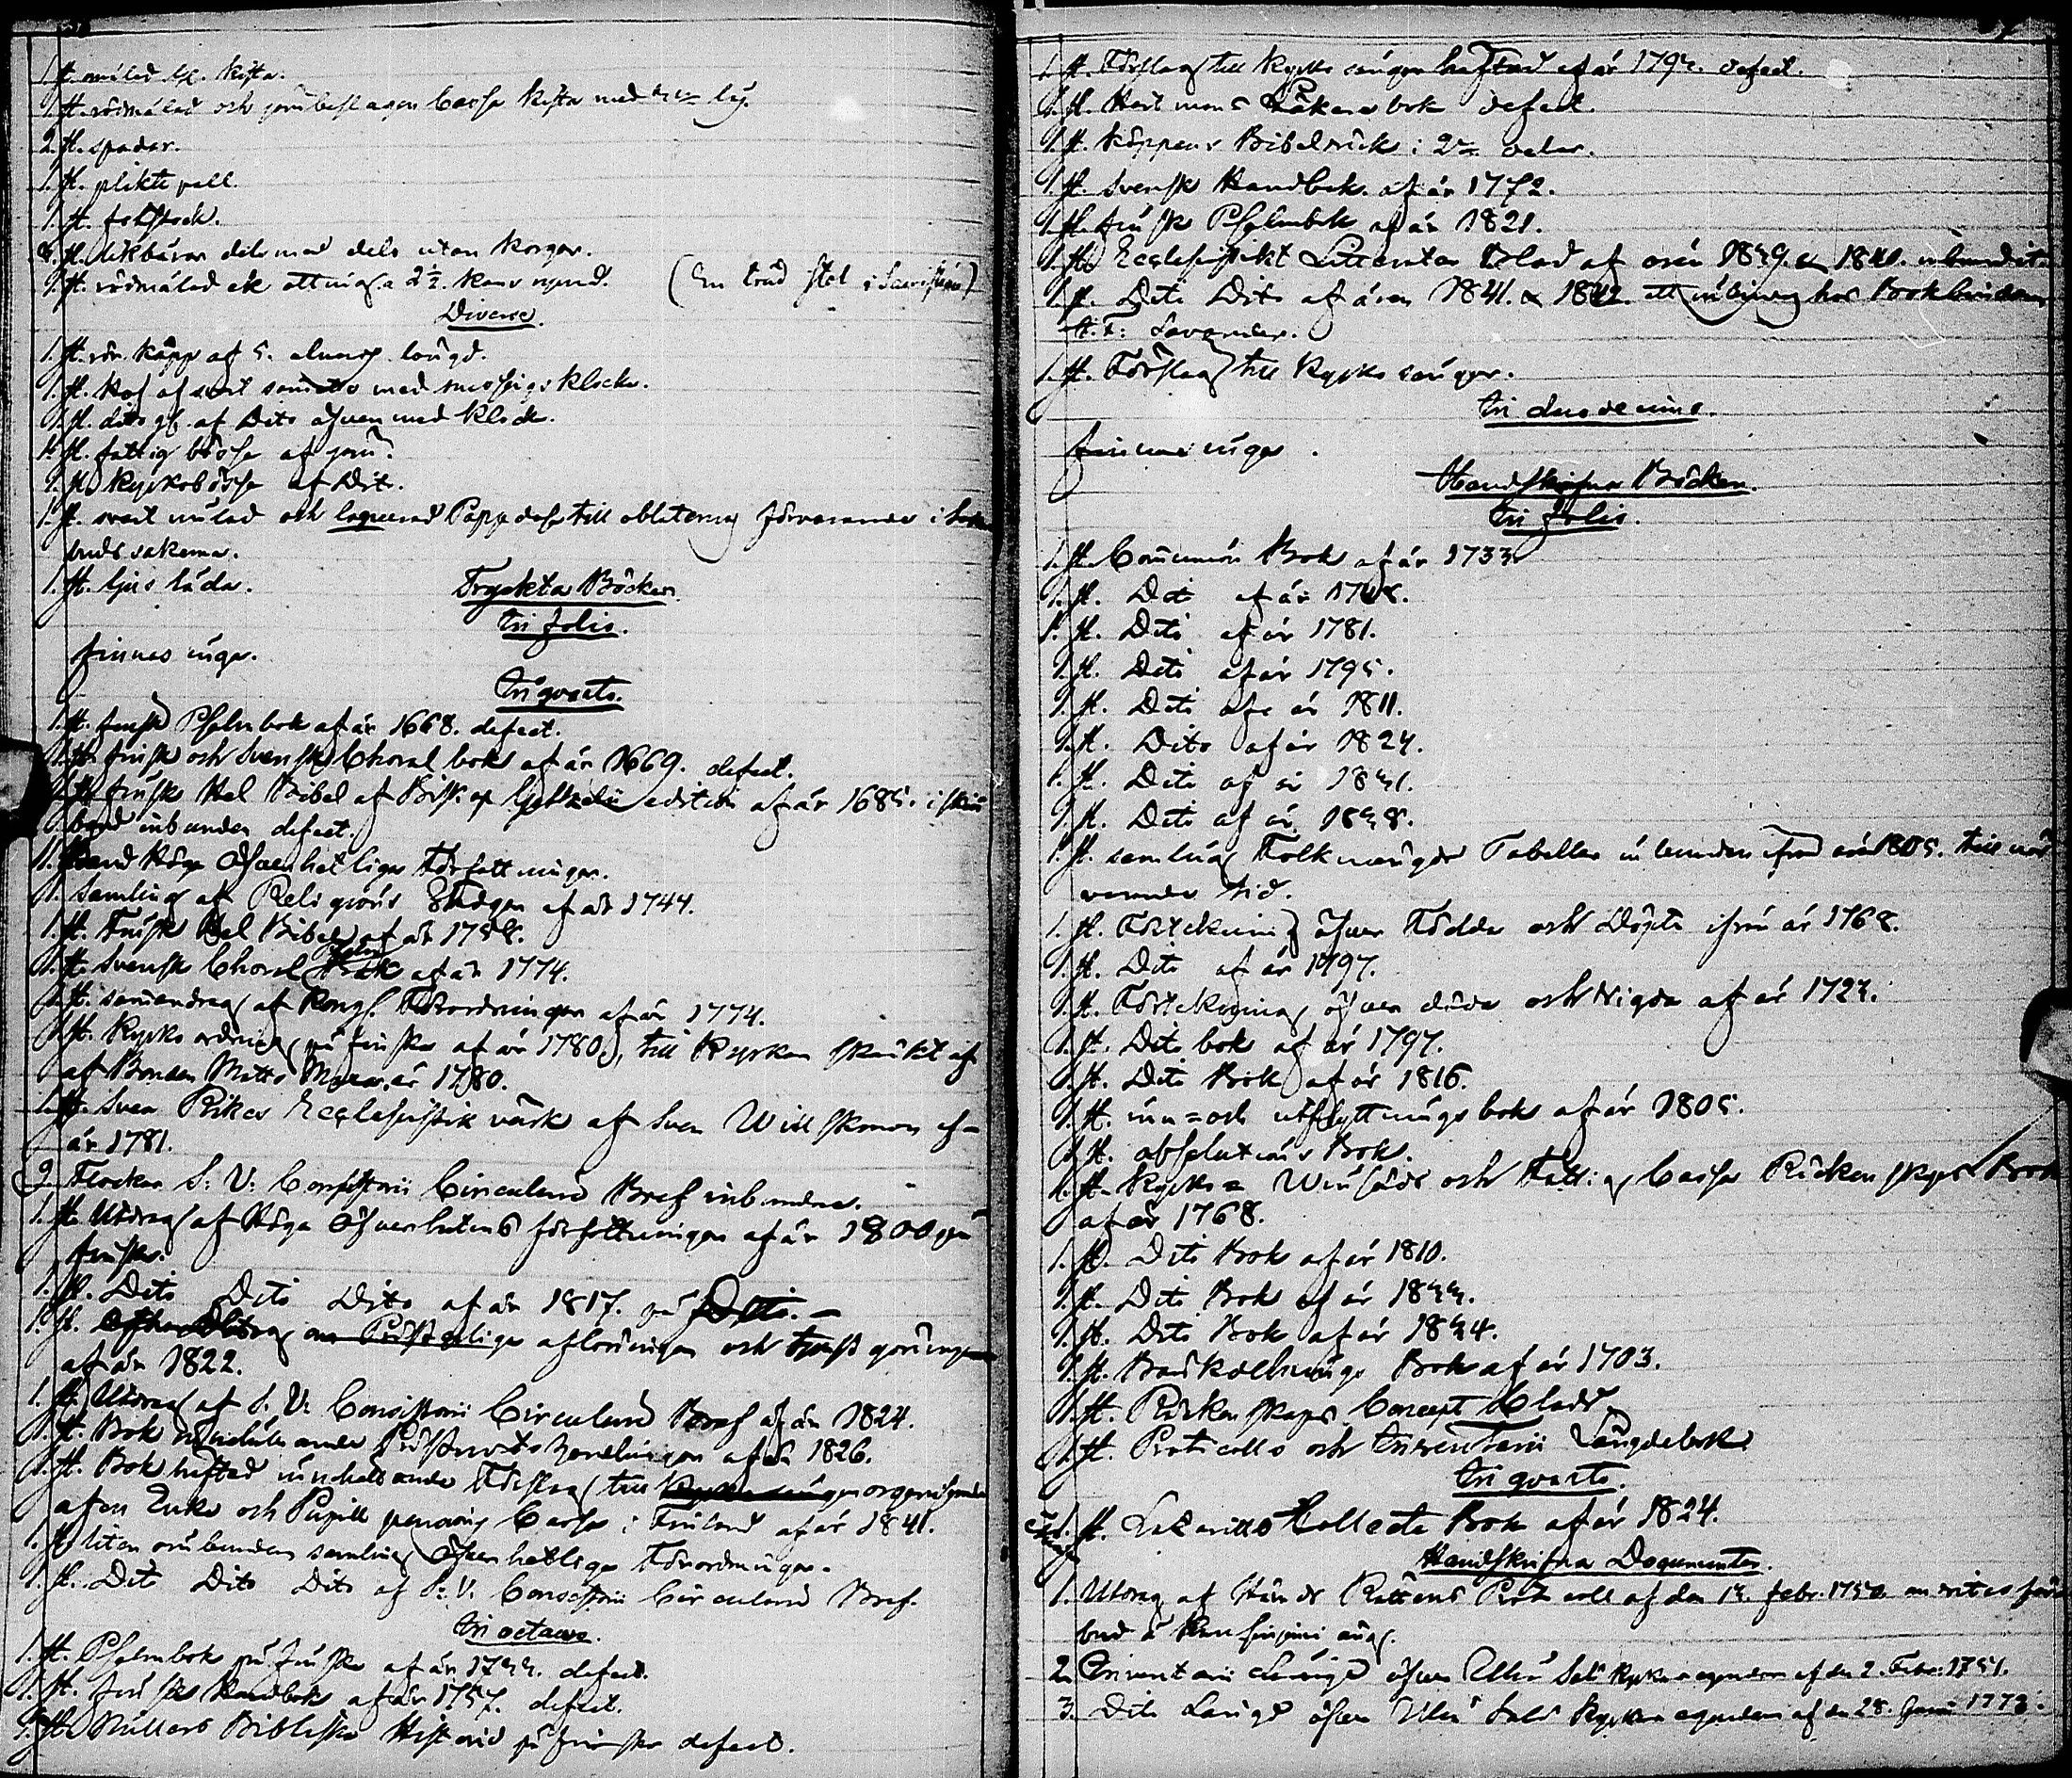 1. st. målad kista.
1. st. rödmålad och järnbeslagen Cassa kista med lås.
2. st. spadar.
1. st. plikte pall.
1. st. fotstock.
st. likbårar dels med dels utan korgar.
1. st. rödmålad ek åtting a 2½ kans rymd. (En träd stol i Sacristian)
Diverse.
1. st. rör käpp af 5. alnars längd.
1. st. Håf af svart sammets med messings klocka.
1. st. dito af Dito äfven med klocka.
1. st. fattig bössa af järn.
1. st. kyrkobössa af Dito.
1. st. svart målad och lagerad Pappdosa till oblaterna förvarande i Soken
buds sakerna.
1. st. ljus låda.
Tryckta Böcker.
In folio.
finnes inga.
In qvarto.
1. st. finsk Psalmbok af år 1668. defect.
1. st. finsk och Svensk Choral bok af år 1669. defect.
1. st. finsk Hel Bibel af Bisk. edition af år 1685. i skin
band inbunden defect.
1. Band Höga Öfverhetliga Författningar.
1. Samling af Religions Stadgar af år 1744.
1. st. Finsk Hel Bibel af år 1758.
1. st. Svensk Choral Psalm Bok af år 1774.
1. st. samandrag af Kongl. Förordningar af år 1774.
1. st. Kyrko ordning på finska af år 1780, till Kyrkan skänkt af
af Bonden Matts år 1780.
1. st. Svea Rikes Ecclesiastik värk af Sven Willskman af
år 1781.
9. Flockar S: V: Consistorii Circulaire Bref inbundna.
1. st. Utdrag af Höga Öfverhetens författningar af år 1800 på
finska.
1. st. Dito Dito Dito af år 1817. på Dito.
1. st. om Prästerliga aflöningen och tjenstgöringen
af år 1822.
1. st. Utdrag af S. V. Consistorii Circulaire Bref af år 1824.
1. st. Bok innehållande Prästmöts handlingar af år 1826.
1. st. Bok häftad innehållande Förslag till organiserande
af en Enke och Pupill pensions Cassa i Finland af år 1841.
1. st. liten oinbunden samling Öfverhetliga Förordningar.
1. st. Dito Dito Dito af S: V. Consistorii Circulaire Bref.
In octavo.
1. st. Psalmbok på finska af år 1733. defect.
1. st. finska Handbok af år 1757. defect.
1. st. Müllers Bibliska Historia på finska defect.
1. st. Förslag till Kyrko sånger häftad af år 1793. defect.
1. st. Hartmans Läkare bok defect.
1. st. Köppens Bibelvärk i 2ne delar.
1. st. svensk Handbok af år 1772.
1. st. finsk Psalmbok af år 1821.
1. st. Ecclesiastikt Litteratur Blad af åren 1839. & 1840. inbundit
1. st. Dito Dito af åren 1841. & 1842. att inbinnas hos Bokbindaren
Lavander.
1. st. Förslag till Kyrko sånger.
In duodecimo.
finnes inga.
Handskrifna Böcker.
In folio.
1. st. Communion Bok af år 1733.
1. st. Dito af år 1748.
1. st. Dito af år 1781.
1. st. Dito af år 1795.
1. st. Dito af år 1811.
1. st. Dito af år 1824.
1. st. Dito af år 1831.
1. st. Dito af år 1838.
1. st. samling Folkmängds Tabeller inbunden ifrån år 1805. till när
varande tid.
1. st. Förteckning öfver Födda och Döpta ifrån år 1768.
1. st. Dito af år 1797.
1. st. Förteckning öfver döda och Vigda af år 1723.
1. st. Dito bok af år 1797.
1. st. Dito Bok af år 1816.
1. st. inn= och utflyttnings bok af år 1805.
1. st. absolutions Bok.
1. st. Kyrko= Winsäds och Fattig Cassa Räkenskaps Bok
af år 1768.
1. st. Dito Bok af år 1810.
1. st. Dito Bok af år 1833.
1. st. Dito Bok af år 1834.
1. st. Bok af år 1703.
1. st. Räkenskaps Concept Kladd.
1. st. Protocolls och Inventarii Längdebok.
In qvarto.
1. st. Collecte Bok af år 1824.
Handskrifna Documenter.
1. Utdrag af Härads Rättens Protocoll af den 13. febr. 1750.
bud å äng.
2. Inventarii Längd öfver Uleå Salo Kyrka egendom af den 2. Febr. 1751.
3. Dito Längd öfver Uleå Salo Kyrka egendom af den 28. Juni 1773.